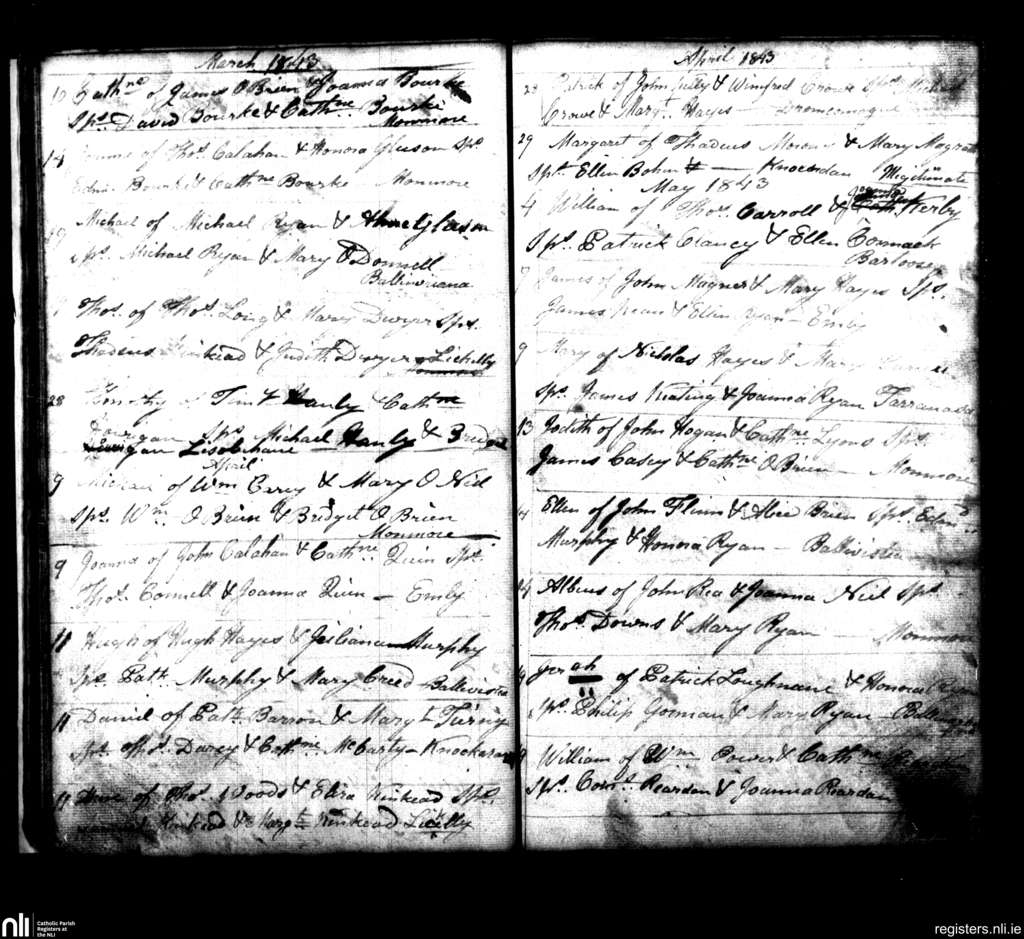 March 1843
10 Cathne of James O Brien & Joanna Bourke
Sps. David Bourke & Cathne Bourke
Monmore
14 of Thos. Calahan & Honora Gleeson Sps.
Edm. Bourke & Cathne Bourke Monmore
Michael of Michael Ryan & Gleeson
Sps. Michael Ryan & Mary O Donnell
Thos. of Thos. Long & Mary Dwyer Sps.
Thadeus Kinkead & Judith Dwyer Lickelly
28 Timothy of Timy Hanly Cathne
Sps. Michael Hanly & Bridget
Lisobihane
April
9 Michael of Wm Carey & Mary O Neil
Sps. Wm. O Brien & Bridget O Brien
Monmore
9 Joanna of John Calahan & Cathne Quin Sps.
Thos. Connell & Joanna Quin - Emly
11 Hugh of Hugh Hayes & Jiliana Murphy
Sps. Patk. Murphy & Mary Creed - Ballivistea
11 Daniel of Patk. Barron & Maryt Turny
Sps. Thos. Darcy & Cathne McCarty - Knockarun
11 of Thos. Woods & Eliza Kinkead Sps.
Kinkead & Margt Kinkead Lickelly
April 1843
23 Patrick of John & Winifred Crowe Sps. Michael
Crowe & Margt. Hayes Dromcomogue
29 Margaret of Thadeus & Mary
Spt. Ellen Bohn — Knocordan Illigitimate
May 1843
4 William of Thos. Carroll & Joanna Kerby
Sps. Patrick Clancy & Ellen Cormack
Barloose
7 James of John Magner & Mary Hayes Sps.
James & Ellen Ryan - Emly
9 Mary of Nicholas Hayes & Mary
Sps. James Keating & Joanna Ryan
13 Judith of John Hogan & Cathne Lyons Sps.
James Casey & Cathne O Brien — Monmore
Ellen of John Flinn & Alice Brien Sps. Edmd
Murphy & Honora Ryan — Ballivistea
14 Albeus of John Rea & Joanna Neil Sps.
Thos. Downs & Mary Ryan — Monmore
of Patrick Loughnane & Honora Ryan
Sps. Philip Gorman & Mary Ryan -
William of Wm Power & Cathne
Sps. Corns. Reardan & Joanna Reardan
nli
Catholic Parish
Registers at
the NLI
registers.nli.ie